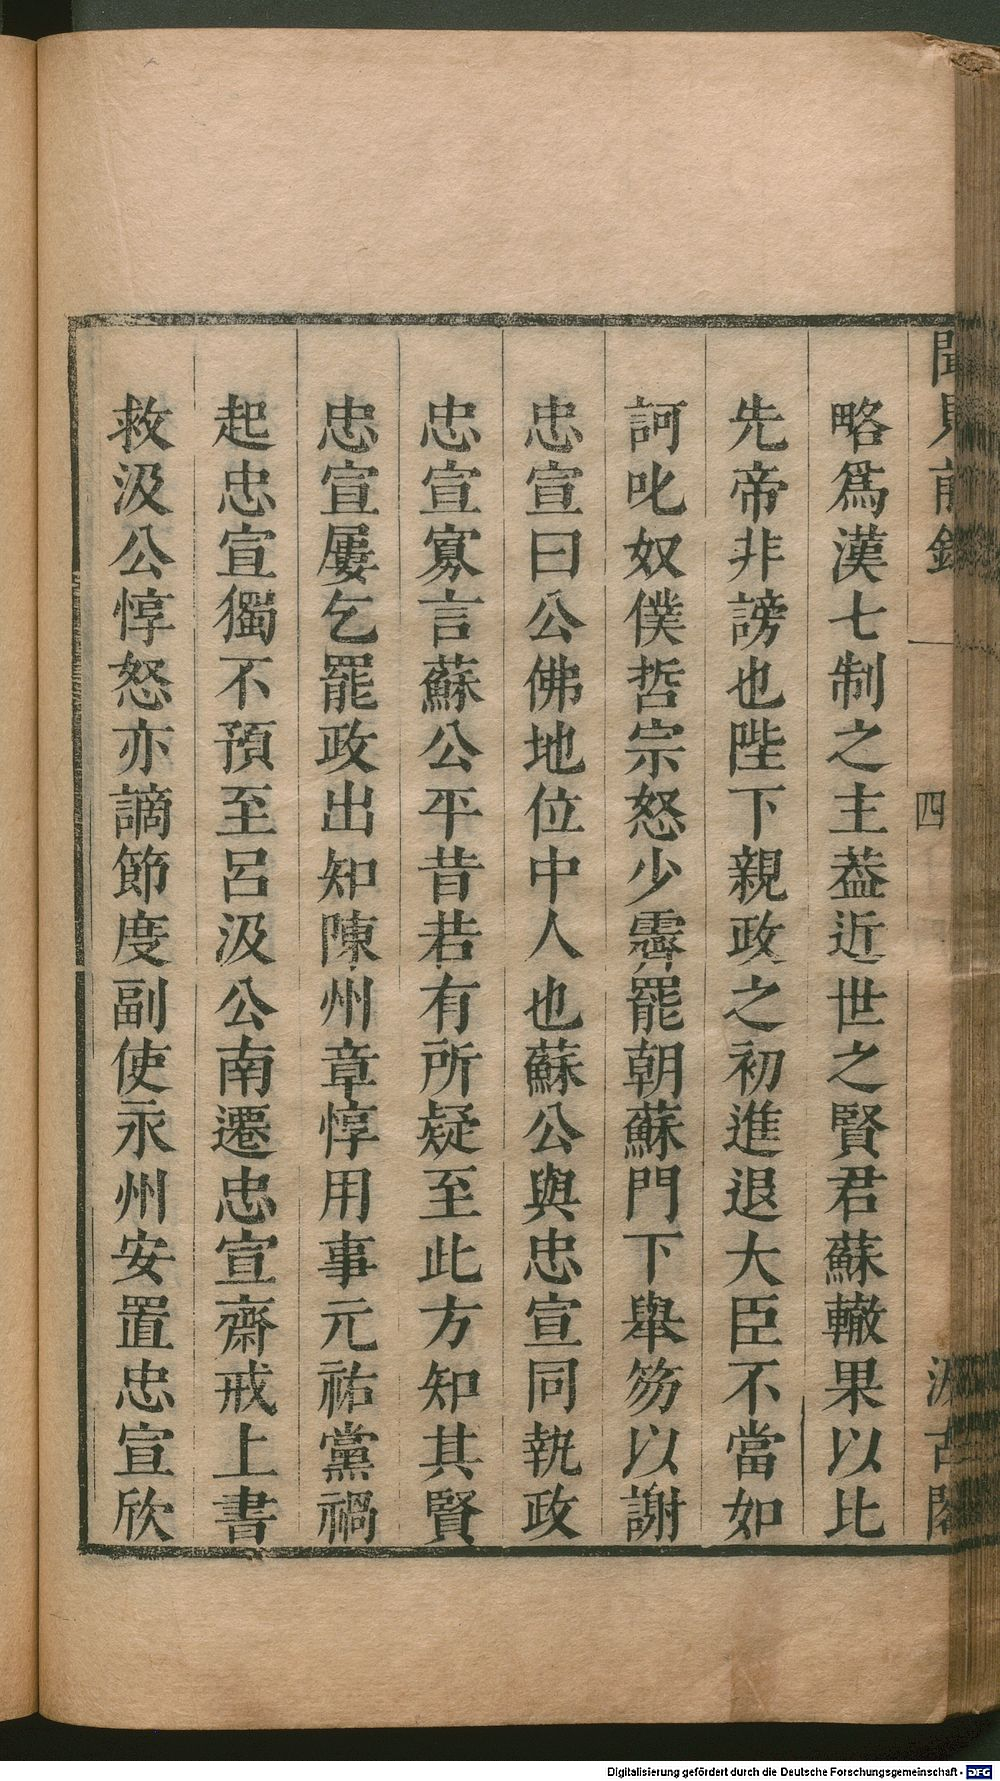 聞見前錄 四 汲古閣
略爲漢七制之主葢近世之賢君蘇轍果以比
先帝非謗也陛下親政之初進退大臣不當如
訶叱奴僕哲宗怒少霽罷朝蘇門下舉笏以謝
忠宣曰公佛地位中人也蘇公與忠宣同執政
忠宣寡言蘇公平昔若有所疑至此方知其賢
忠宣屢乞罷政出知陳州章惇用事元祐黨禍
起忠宣獨不預至呂汲公南遷忠宣齋戒上書
救汲公惇怒亦謫節度副使永州安置忠宣欣
Digitalisierung gefördert durch die Deutsche Forschungsgemeinschaft - DFG